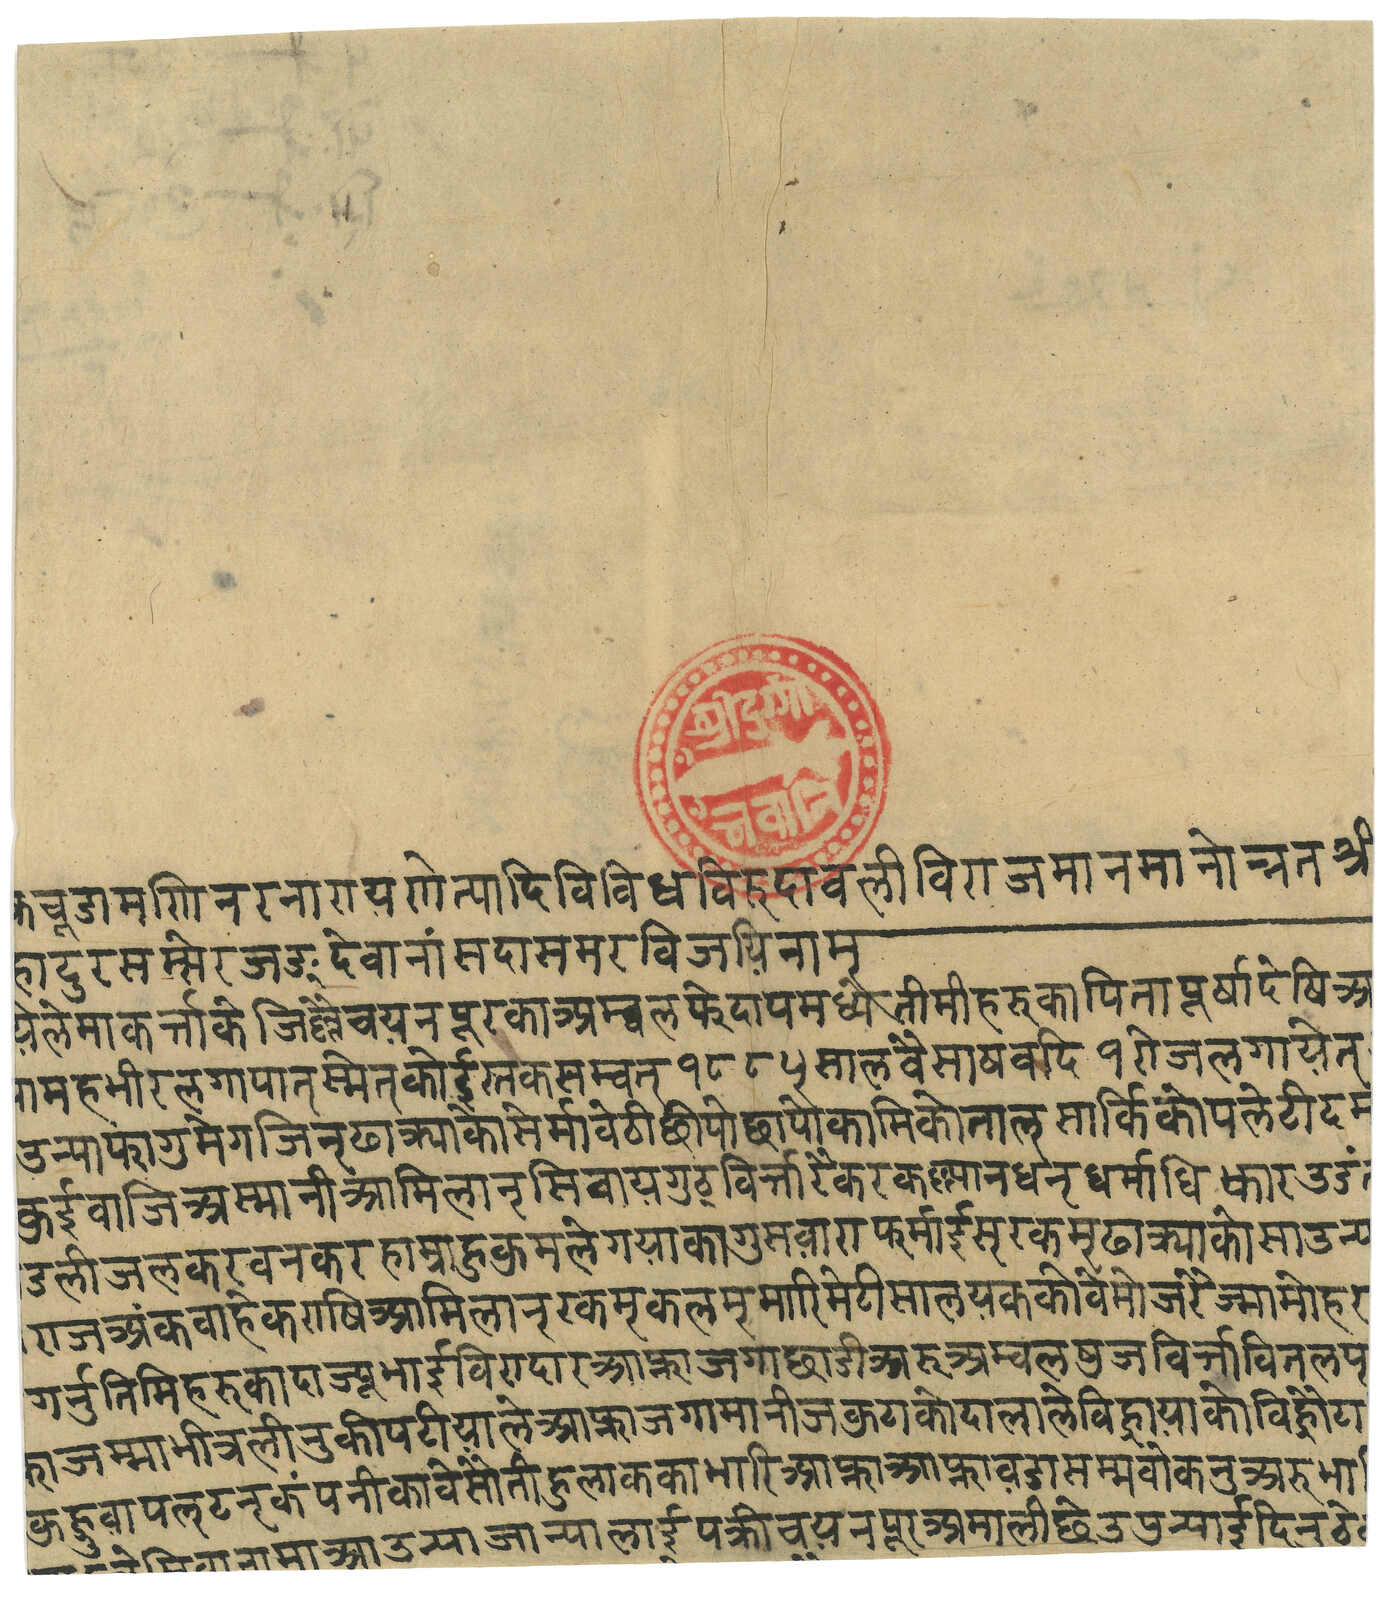 श्रीदुर्गा
भवानि
कचूडामणिनरनारायणेत्यादिविविधविरुदावलीविराजमानमानोन्नतश्री
हादुरसम्सेरजङ्देवानांसदासमरविजयिनाम्
येलेमाकर्त्ताके चयनपूरकाअम्बलफेदापमध्येतीमीहरुकापितापूर्षादेषिअ
महभीरलगापातस्मेत्कोईस्तकसम्वत् १८८५ सालवैसाषवदि १ रोजलगायेत्
उन्याफागुमेगजिन्ढाक्र्याकोसेर्मावेठीछीपोछापोकामिकोताल्सार्किकोपलेटीदम
क्रईवाजिअस्मानीआमिलान्सिवायगुठ्विर्त्तारैकरकल्यानधन्धर्माधिकारडडं
उलीजलकरवनकरहाम्राहुक्रमलेगयाकागुसवाराफर्माईस्रकम्ढाक्र्याकोसाउन्या
राजअंकवाहेकराषिआमिलान्रकम्कलम्मारिमेटीसालयककोवेमोजरैज्मामोहरु
गर्नुतिमिहरुकादाज्यूभाईविरादारआफ्नाजगाछाडीअरुअम्वलषुजविर्त्तावितलप्
काजम्माभीत्रलीनुकीपटीयालेआफ्नाजगामानीजक्रटाकोदालालेविह्रायाकोविह्रौटा
क्रहुवापल्टन्कंपनीकावेसौतीहुलाककाभारिआफ्नाआफ्नावडासम्मवोकनुअरुभा
सिवानामाआउन्याजान्यालाईपक्रीचयनपूरअमालीछेउपुन्याईदिनठे